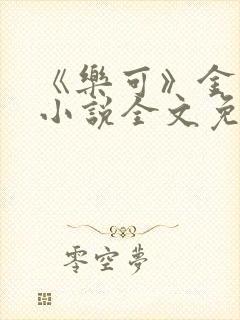 《樂可》金
小說全文免
零空夢